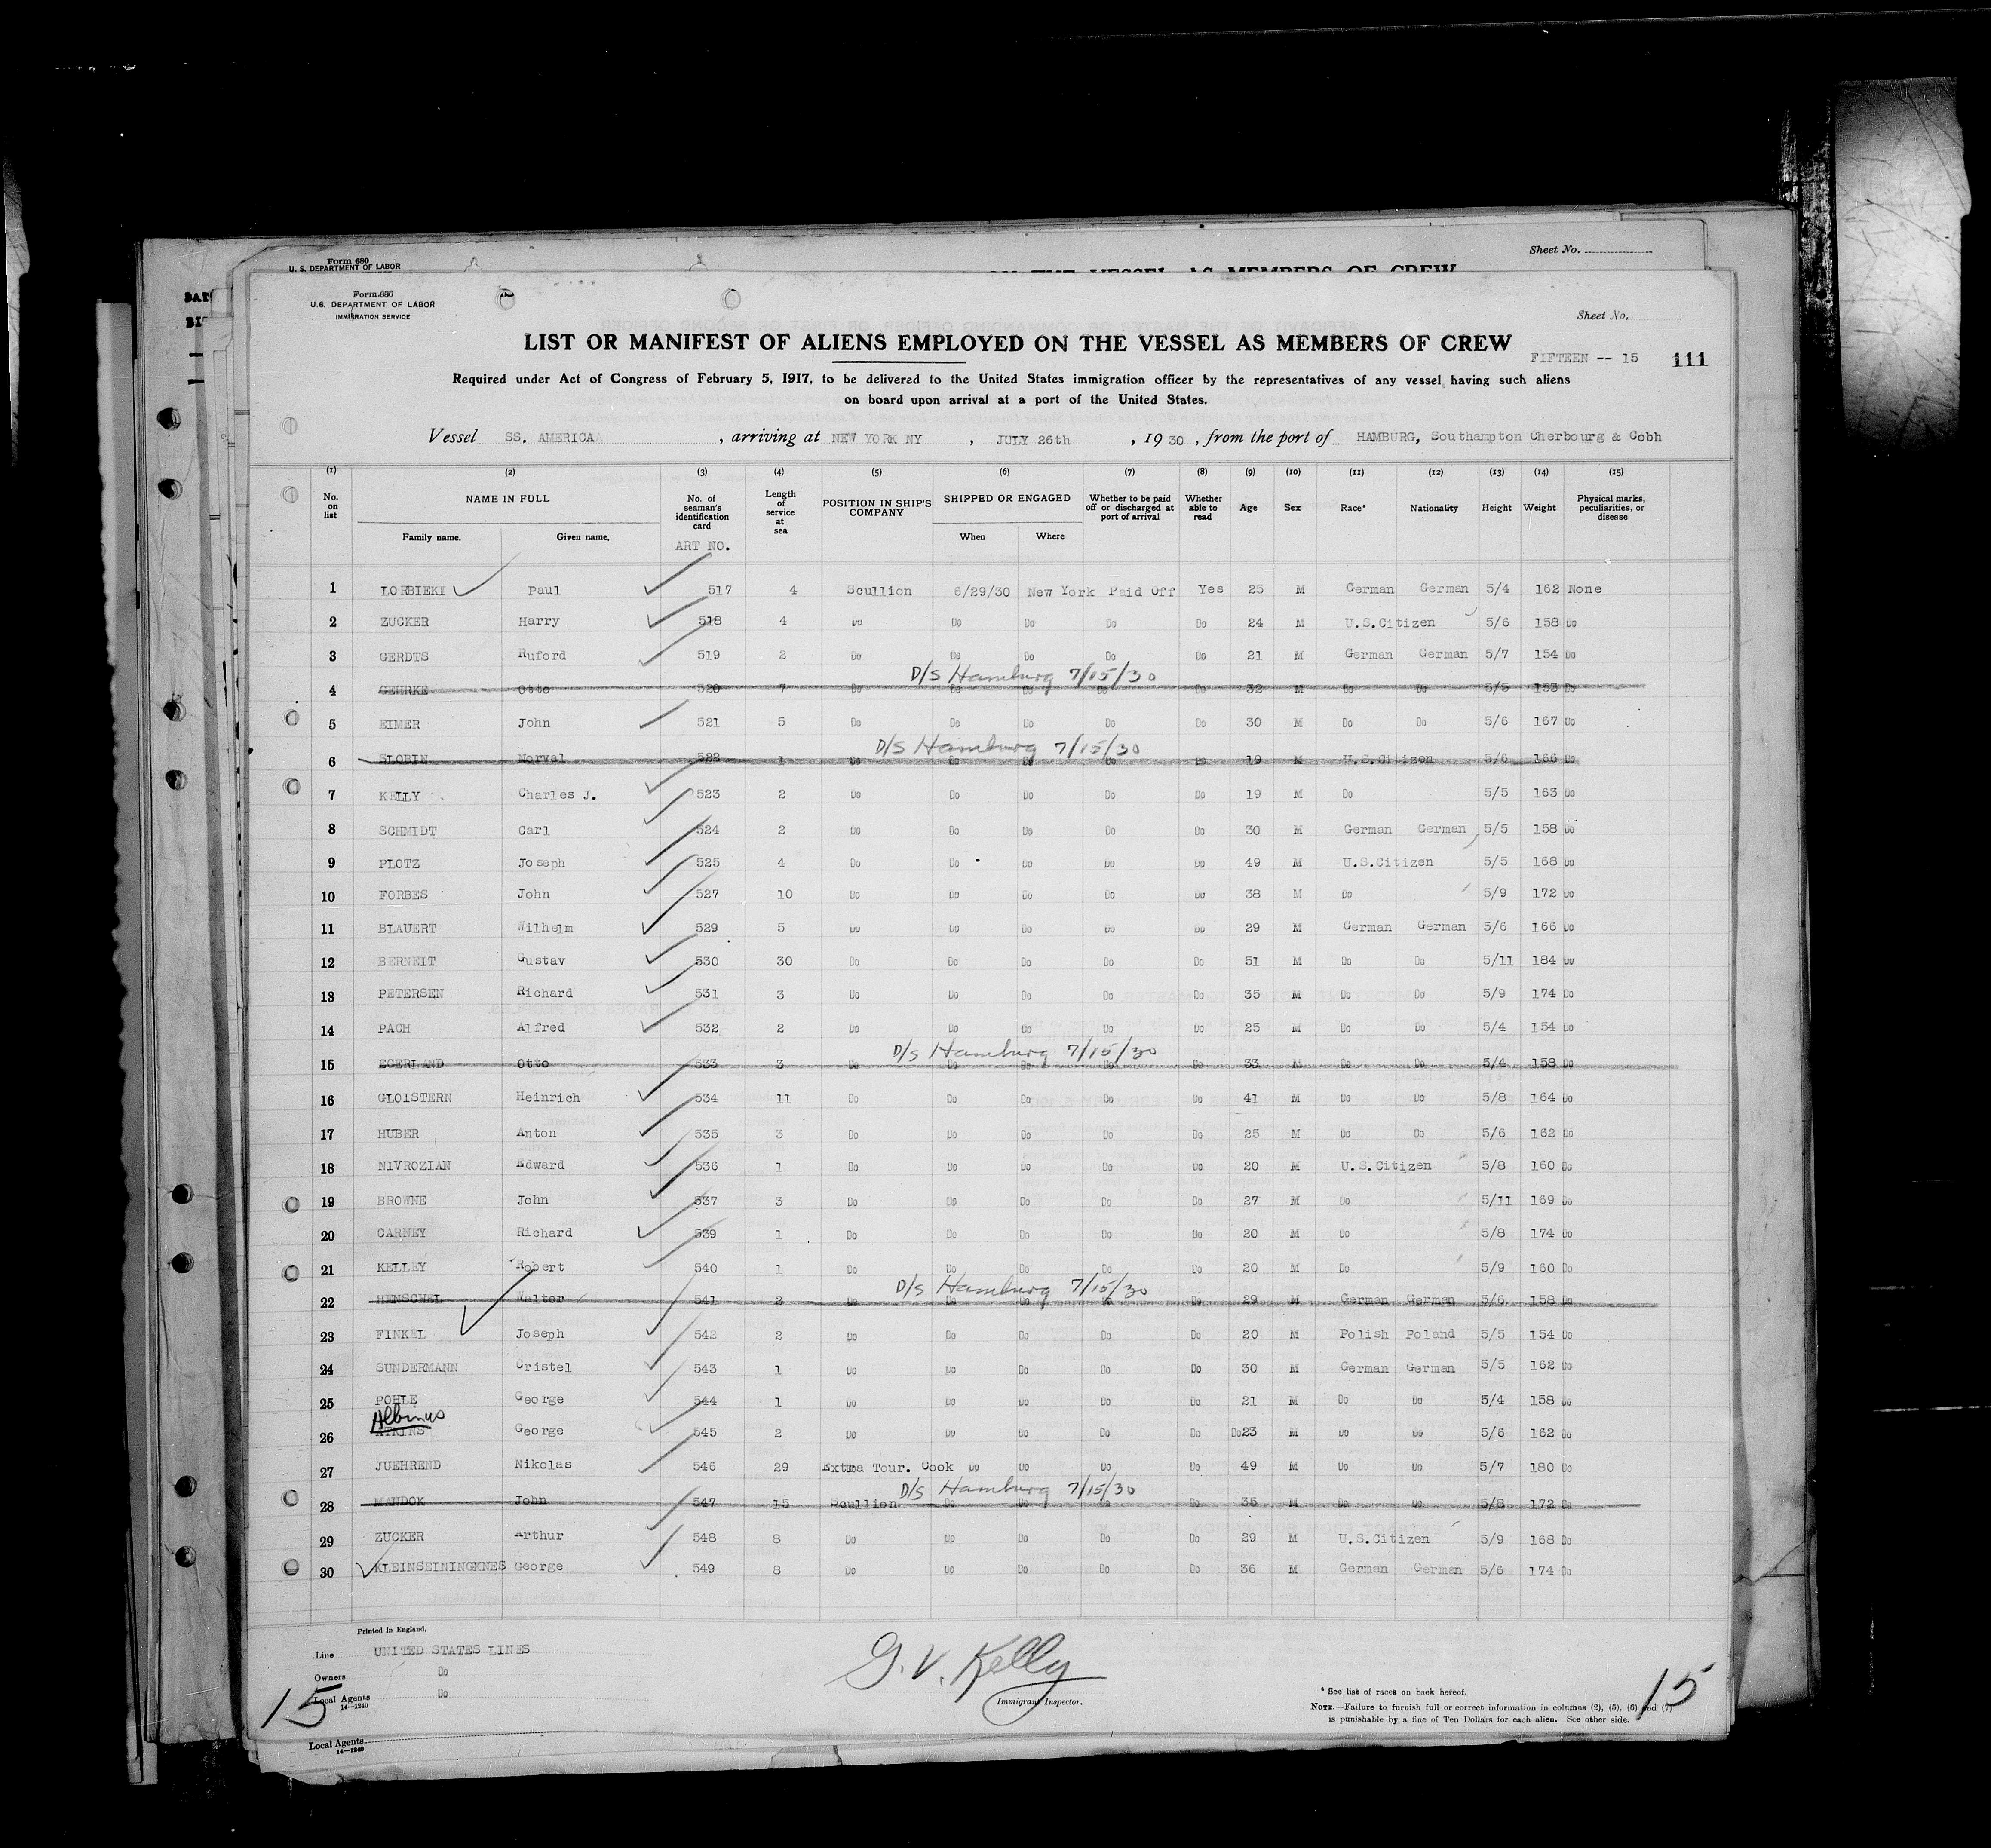 Form 680
U. S. DEPARTMENT OF LABOR
Sheet No.
Form 680
U.S. DEPARTMENT OF LABOR
IMMIGRATION SERVICE
Sheet No.
LIST OR MANIFEST OF ALIENS EMPLOYED ON THE VESSEL AS MEMBERS OF CREW
FIFTEEN -- 15 111
Required under Act of Congress of February 5, 1917, to be delivered to the United States immigration officer by the representatives of any vessel having such aliens
on board upon arrival at a port of the United States.
Vessel SS. AMERICA , arriving at NEW YORK NY , JULY 26th , 1930 , from the port of HAMBURG, Southampton Cherbourg & Cobh
(1) (2) (3) (4) (5) (6) (7) (8) (9) (10) (11) (12) (13) (14) (15)
No. on list NAME IN FULL Family name. Given name. No. of seaman's identification card ART NO. Length of service at sea POSITION IN SHIP'S COMPANY SHIPPED OR ENGAGED When Where Whether to be paid off or discharged at port of arrival Whether able to read Age Sex Race* Nationality Height Weight Physical marks, peculiarities, or disease
1 LORBIEKI Paul 517 4 Scullion 6/29/30 New York Paid Off Yes 25 M German German 5/4 162 None
2 ZUCKER Harry 518 4 Do Do Do Do Do 24 M U.S.Citizen 5/6 158 Do
3 GERDTS Ruford 519 2 Do Do Do Do Do 21 M German German 5/7 154 Do
D/S Hamburg 7/15/30
4 GEHRKE Otto 520 7 Do Do Do Do Do 32 M Do Do 5/5 153 Do
5 EIMER John 521 5 Do Do Do Do Do 30 M Do Do 5/6 167 Do
D/S Hamburg 7/15/30
6 SLOBIN Norval 522 1 Do Do Do Do Do 19 M U.S.Citizen 5/6 166 Do
7 KELLY Charles J. 523 2 Do Do Do Do Do 19 M Do 5/5 163 Do
8 SCHMIDT Carl 524 2 Do Do Do Do Do 30 M German German 5/5 158 Do
9 PLOTZ Joseph 525 4 Do Do Do Do Do 49 M U.S.Citizen 5/5 168 Do
10 FORBES John 527 10 Do Do Do Do Do 38 M Do 5/9 172 Do
11 BLAUERT Wilhelm 529 5 Do Do Do Do Do 29 M German German 5/6 166 Do
12 BERNEIT Gustav 530 30 Do Do Do Do Do 51 M Do Do 5/11 184 Do
13 PETERSEN Richard 531 3 Do Do Do Do Do 35 M Do Do 5/9 174 Do
14 PACH Alfred 532 2 Do Do Do Do Do 25 M Do Do 5/4 154 Do
D/s Hamburg 7/15/30
15 EGERLAND Otto 533 3 Do Do Do Do Do 33 M Do Do 5/4 158 Do
16 GLOISTERN Heinrich 534 11 Do Do Do Do Do 41 M Do Do 5/8 164 Do
17 HUBER Anton 535 3 Do Do Do Do Do 25 M Do Do 5/6 162 Do
18 NIVROZIAN Edward 536 1 Do Do Do Do Do 20 M U.S.Citizen 5/8 160 Do
19 BROWNE John 537 3 Do Do Do Do Do 27 M Do 5/11 169 Do
20 CARNEY Richard 539 1 Do Do Do Do Do 20 M Do 5/8 174 Do
21 KELLEY Robert 540 1 Do Do Do Do Do 20 M Do 5/9 160 Do
D/s Hamburg 7/15/30
22 HENSCHEL Walter 541 2 Do Do Do Do Do 29 M German German 5/6 158 Do
23 FINKEL Joseph 542 2 Do Do Do Do Do 20 M Polish Poland 5/5 154 Do
24 SUNDERMANN Cristel 543 1 Do Do Do Do Do 30 M German German 5/5 162 Do
25 POHLE George 544 1 Do Do Do Do Do 21 M Do Do 5/4 158 Do
Albinus
26 ATKINS George 545 2 Do Do Do Do Do Do23 M Do Do 5/6 162 Do
27 JUEHREND Nikolas 546 29 Extra Tour. Cook Do Do Do Do 49 M Do Do 5/7 180 Do
D/s Hamburg 7/15/30
28 MANDOK John 547 15 Scullion Do Do Do Do 35 M Do Do 5/8 172 Do
29 ZUCKER Arthur 548 8 Do Do Do Do Do 29 M U.S.Citizen 5/9 168 Do
30 KLEINSEININGKNES George 549 8 Do Do Do Do Do 36 M German German 5/6 174 Do
Printed in England.
Line UNITED STATES LINES
Owners Do
Local Agents Do
14—1240
15
G. V. Kelly
Immigrant Inspector.
* See list of races on back hereof.
NOTE.—Failure to furnish full or correct information in columns (2), (5), (6) and (7)
is punishable by a fine of Ten Dollars for each alien. See other side.
15
Local Agents
14—1240